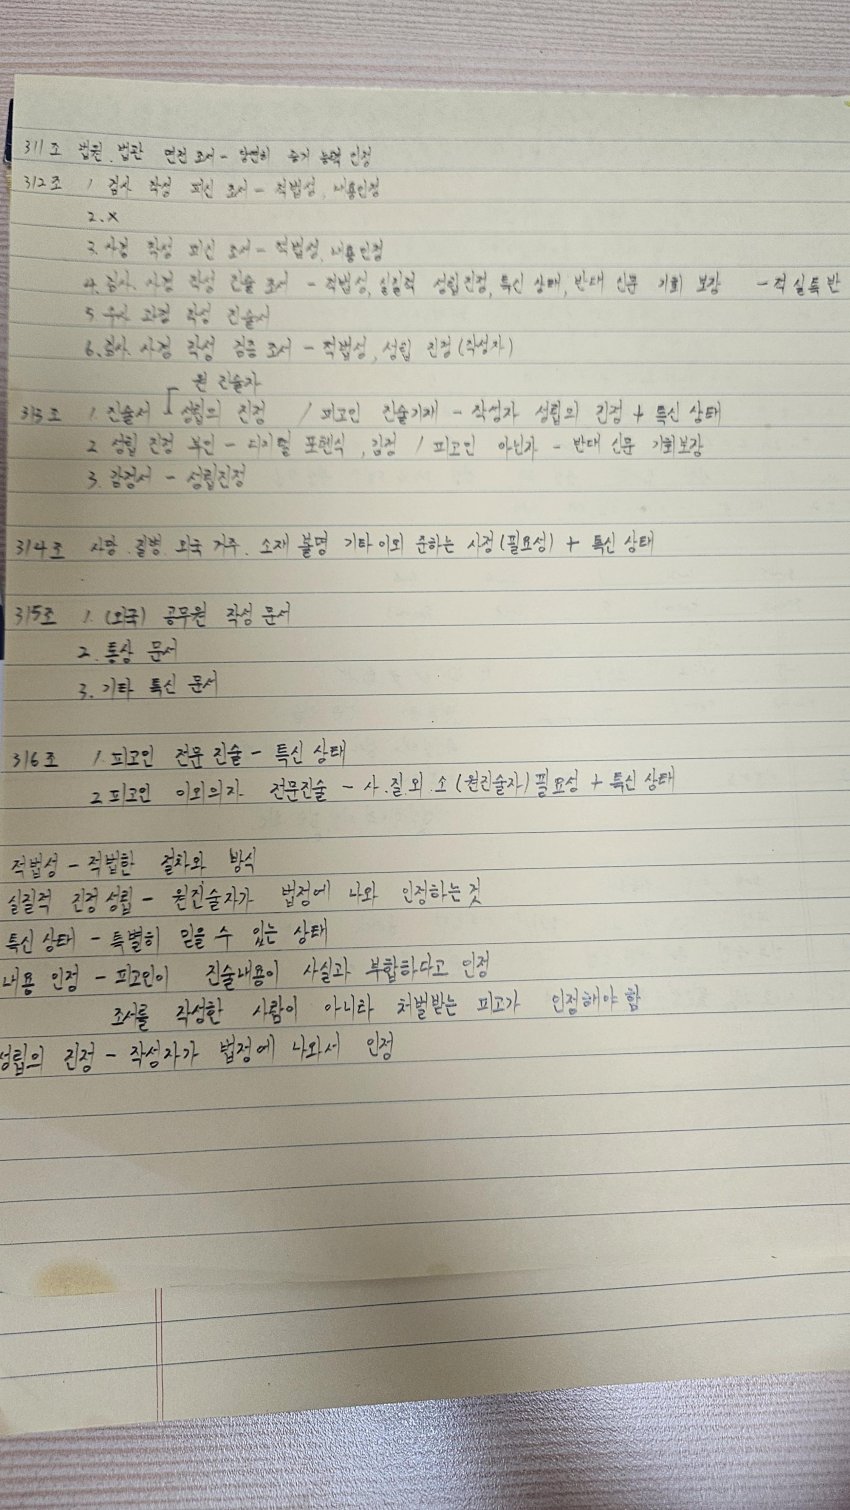 311조 법원.법관 면전 조서 - 당연히 증거 능력 인정
312조 1. 검사 작성 피신 조서 - 적법성, 내용인정
2. X
3. 사경 작성 피신 조서 - 적법성, 내용인정
4. 검사. 사경 작성 진술 조서 - 적법성, 실질적 성립진정, 특신 상태, 반대 신문 기회 보장 - 적실특반
5 수사 과정 작성 진술서
6. 검사. 사경 작성 검증 조서 - 적법성, 성립 진정(작성자)
원 진술자
313조 1. 진술서 - 성립의 진정 / 피고인 진술기재 - 작성자 성립의 진정 + 특신 상태
2. 성립 진정 부인 - 디지털 포렌식, 감정 / 피고인 아닌자 - 반대 신문 기회보장
3. 감정서 - 성립진정
314조 사망.질병.외국 거주. 소재 불명 기타 이외 준하는 사정(필요성) + 특신 상태
315조 1. (외국) 공무원 작성 문서
2. 통상 문서
3. 기타 특신 문서
316조 1. 피고인 전문 진술 - 특신 상태
2 피고인 이외의자 전문진술 - 사.질.외.소(원진술자) 필요성 + 특신 상태
적법성 - 적법한 절차와 방식
실질적 진정성립 - 원진술자가 법정에 나와 인정하는 것
특신 상태 - 특별히 믿을 수 있는 상태
내용 인정 - 피고인이 진술내용이 사실과 부합하다고 인정
조서를 작성한 사람이 아니라 처벌받는 피고가 인정해야 함
성립의 진정 - 작성자가 법정에 나와서 인정